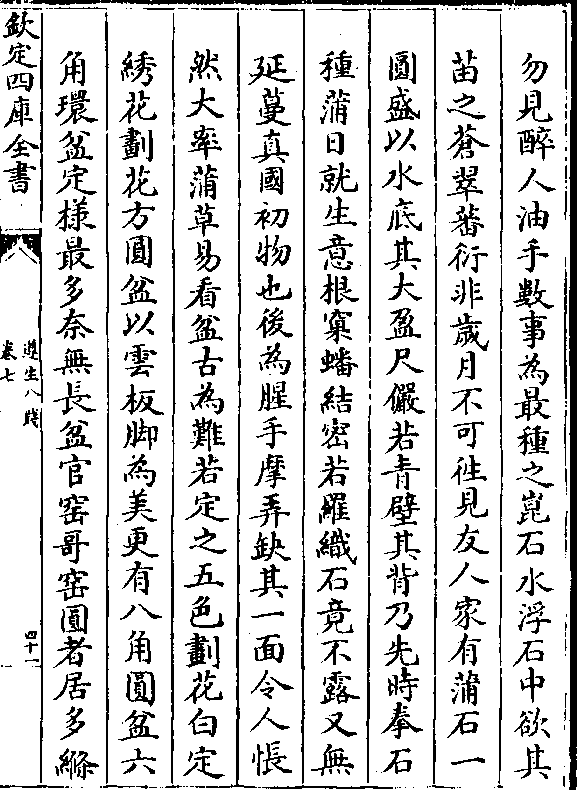 勿見醉人油手數事為最種之崑石水浮石中欲其
苗之蒼翠蕃衍非歲月不可徃見友人家有蒲石一
圓盛以水底其大盈尺儼若青壁其背乃先時拳石
種蒲日就生意根窠蟠結密若羅織石竟不露又無
延蔓真國初物也後為腥手摩弄缺其一面令人悵
然大率蒲草易看盆古為難若定之五色劃花白定
綉花劃花方圓盆以雲板脚為美更有八角圓盆六
角環盆定樣最多奈無長盆官窑哥窑圓者居多縧
欽定四庫全書
遵生八牋
卷七
四十一